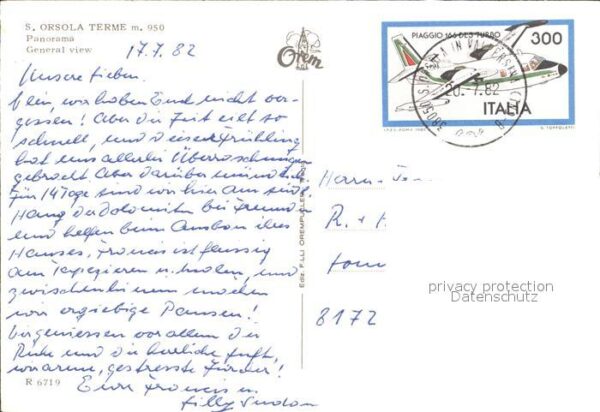 S. ORSOLA TERME m. 950
Panorama
General view
17.7.82
Unsere Lieben.
Nein, wir haben Euch nicht ver-
gessen! Aber die Zeit eilt so
schnell, und dieser Frühling
hat uns allerlei Überraschungen
gebracht. Aber darüber mündlich.
Für 14 Tage sind wir hier am südl.
Hang der Dolomiten bei Freunden
und helfen beim Ausbau ihres
Hauses, Francis ist fleissig
am Tapezieren u. malen, und
zwischenhinein machen
wir ergiebige Pausen!
Wir geniessen vor allem die
Ruhe und die herrliche Luft,
wir arme, gestresste Zürcher!
Eure Francis u.
R 6719
Orem
Ediz. F.LLI OREMPULLER
PIAGGIO 166 DL3-TURBO
300
ITALIA
20.7.82
38050
Herrn
R. + 
8172
privacy protection
Datenschutz